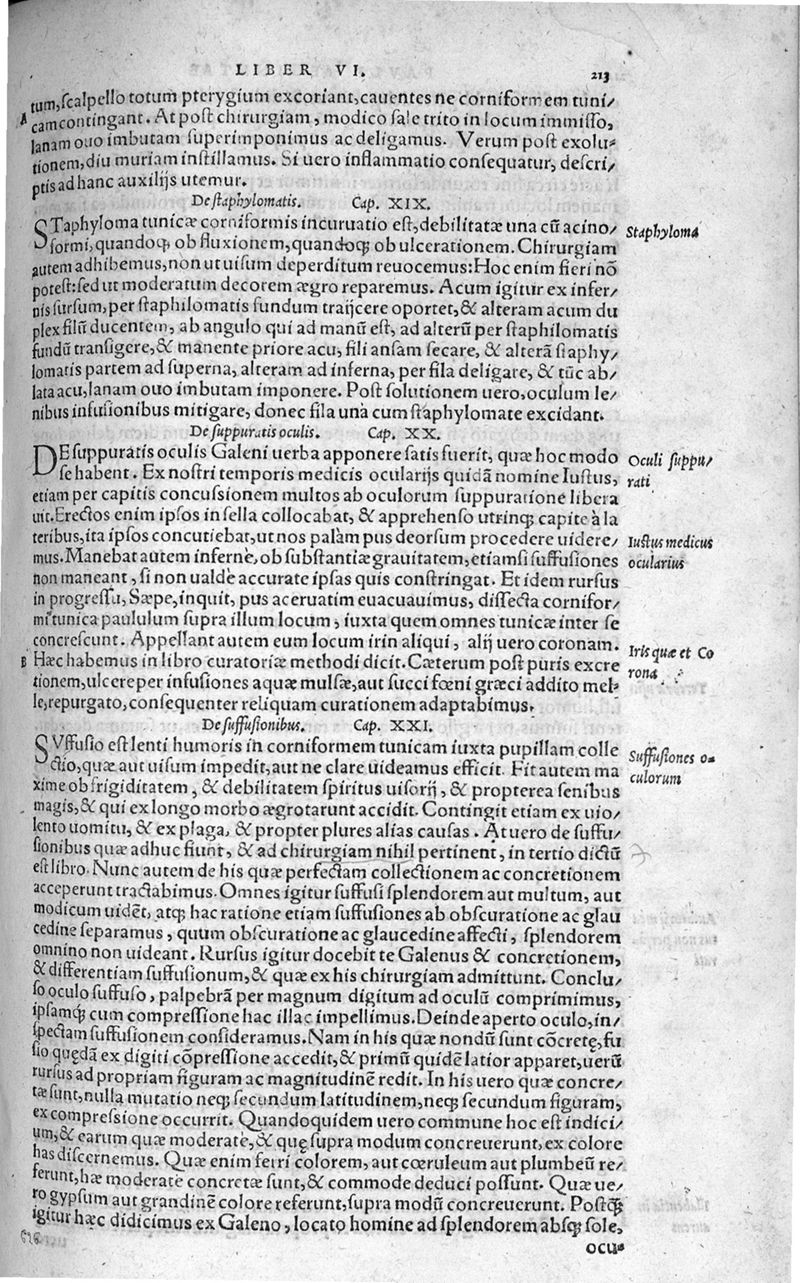 LIBER VI. 213
tum, scalpello totum pterygium excoriant, cauentes ne corniformem tuni/
A camcontingant. At post chirurgiam, modico sale trito in locum immisso,
lanam ouo imbutam superimponimus ac deligamus. Verum post exolu/
tionem, diu muriam instillamus. Si uero inflammatio consequatur, descri/
ptis ad hanc auxilijs utemur.
De staphylomatis. Cap. XIX.
STaphyloma tunicæ corniformis incuruatio est, debilitatæ una cũ acino/
formi, quandoq; ob fluxionem, quandoq; ob ulcerationem. Chirurgiam
autem adhibemus, non ut uisum deperditum reuocemus: Hoc enim fieri nõ
potest: sed ut moderatum decorem ægro reparemus. Acum igitur ex infer/
nis sursum, per staphilomatis fundum traijcere oportet, & alteram acum du
plex filũ ducentem, ab angulo qui ad manũ est, ad alterũ per staphilomatis
fundũ transigere, & manente priore acu, fili ansam secare, & alterã staphy/
lomatis partem ad superna, alteram ad inferna, per fila deligare, & tũc ab/
lata acu, lanam ouo imbutam imponere. Post solutionem uero, oculum le/
nibus infusionibus mitigare, donec fila unà cum staphylomate excidant.
Staphyloma
De suppuratis oculis. Cap. XX.
DE suppuratis oculis Galeni uerba apponere satis fuerit, quæ hoc modo
se habent. Ex nostri temporis medicis ocularijs quidã nomine Iustus,
etiam per capitis concussionem multos ab oculorum suppuratione libera
uit. Erectos enim ipsos in sella collocabat, & apprehenso utrinq; capite à la
teribus, ita ipsos concutiebat, ut nos palàm pus deorsum procedere uidere/
mus. Manebat autem infernè, ob substantiæ grauitatem, etiamsi suffusiones
non maneant, si non ualdè accurate ipsas quis constringat. Et idem rursus
in progressu, Sæpe, inquit, pus aceruatim euacuauimus, dissecta cornifor/
mi tunica paululum supra illum locum, iuxta quem omnes tunicæ inter se
concrescunt. Appellant autem eum locum irin aliqui, alij uero coronam.
B Hæc habemus in libro curatoriæ methodi dicit. Cæterum post puris excre
tionem, ulcere per infusiones aquæ mulsæ, aut succi fœni græci addito mel/
le, repurgato, consequenter reliquam curationem adaptabimus.
Oculi suppu/
rati
Iustus medicus
ocularius
Iris quæ et Co
rona
De suffusionibus. Cap. XXI.
SVffusio est lenti humoris in corniformem tunicam iuxta pupillam colle
ctio, quæ aut uisum impedit, aut ne clare uideamus efficit. Fit autem ma
xime ob frigiditatem, & debilitatem spiritus uisorij, & propterea senibus
magis, & qui ex longo morbo ægrotarunt accidit. Contingit etiam ex uio/
lento uomitu, & ex plaga, & propter plures alias causas. At uero de suffu/
sionibus quæ adhuc fiunt, & ad chirurgiam nihil pertinent, in tertio dictũ
est libro. Nunc autem de his quæ perfectam collectionem ac concretionem
acceperunt tractabimus. Omnes igitur suffusi splendorem aut multum, aut
modicum uidẽt, atq; hac ratione etiam suffusiones ab obscuratione ac glau
cedine separamus, quum obscuratione ac glaucedine affecti, splendorem
omnino non uideant. Rursus igitur docebit te Galenus & concretionem,
& differentiam suffusionum, & quæ ex his chirurgiam admittunt. Conclu/
so oculo suffuso, palpebrã per magnum digitum ad oculũ comprimimus,
ipsamq; cum compressione hac illac impellimus. Deinde aperto oculo, in/
spectam suffusionem consideramus. Nam in his quæ nondũ sunt cõcretę, fu
sio quędã ex digiti cõpressione accedit, & primũ quidẽ latior apparet, uerũ
rursus ad propriam figuram ac magnitudinẽ redit. In his uero quæ concre/
tæ sunt, nulla mutatio neq; secundum latitudinem, neq; secundum figuram,
ex compressione occurrit. Quandoquidem uero commune hoc est indici/
um, & earum quæ moderatè, & quę supra modum concreuerunt, ex colore
has discernemus. Quæ enim ferri colorem, aut cœruleum aut plumbeũ re/
ferunt, hæ moderate concretæ sunt, & commode deduci possunt. Quæ ue/
ro gypsum aut grandinẽ colore referunt, supra modũ concreuerunt. Postq̃
igitur hæc didicimus ex Galeno, locato homine ad splendorem absq; sole,
ocu-
Suffusiones o-
culorum